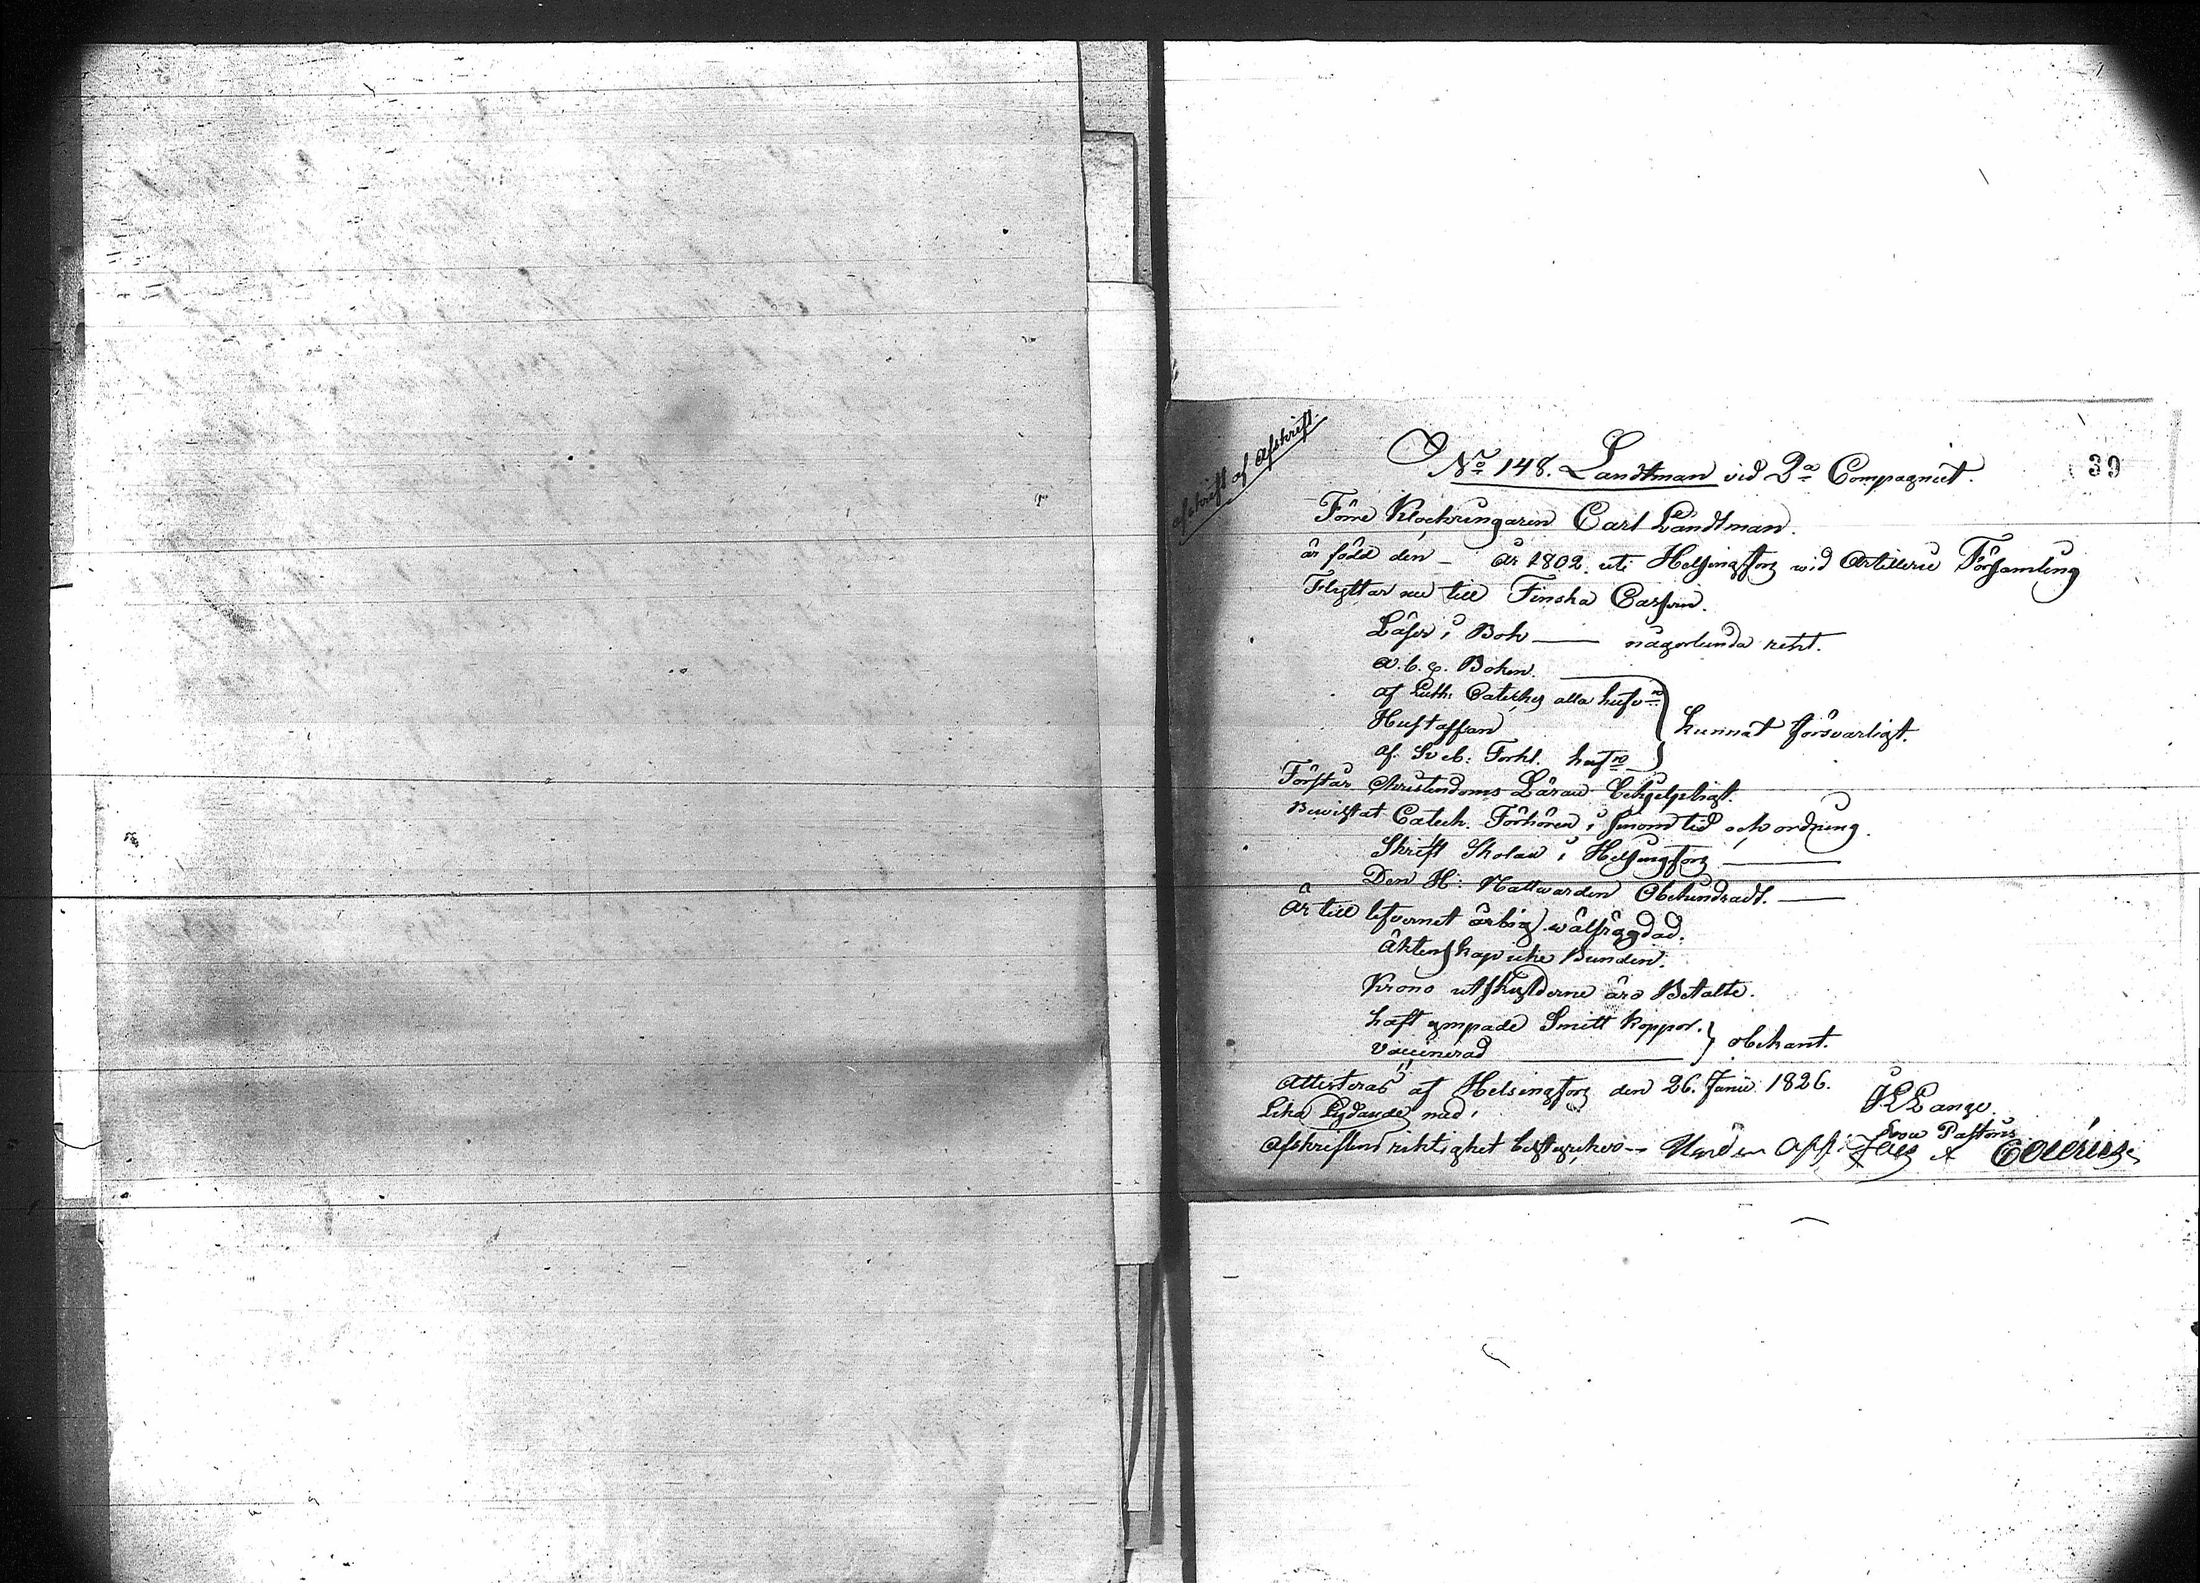 afskrift af Afskrift.
39
No 148. Landtman vid 2a Compagniet.
Förre Klockringaren Carl Landtman.
är född den — År 1802. uti Helsingfors wid Artillerie Församling
Flyttar nu till Finska Carspin.
Läser i Bok —— någorlunda rent.
A.b.c. Boken.
af Luth: Cateches alla hufv
Hustaflan
af Sveb: Förkl. hufv
kunnat försvarligt.
Förstår Christendoms Läran behjelpligt.
Bewistat Catech. Förhören i sinom tid och ordning.
Skrift Skolan i Helsingfors ——
Den H: Nattwarden Obehindradt. ——
Är till lefvernet ärlig wälfrägdad.
Äktenskap icke Bunden.
Krono utskylderne äro Betalte.
haft ympade Smitt koppor.
Vaccinerad
obekant.
Attesteras af Helsingfors den 26. Junii 1826.
J. L Lange.
Lika Lydande med,
Vice Pastor
Afskriftens riktighet bestyrker —